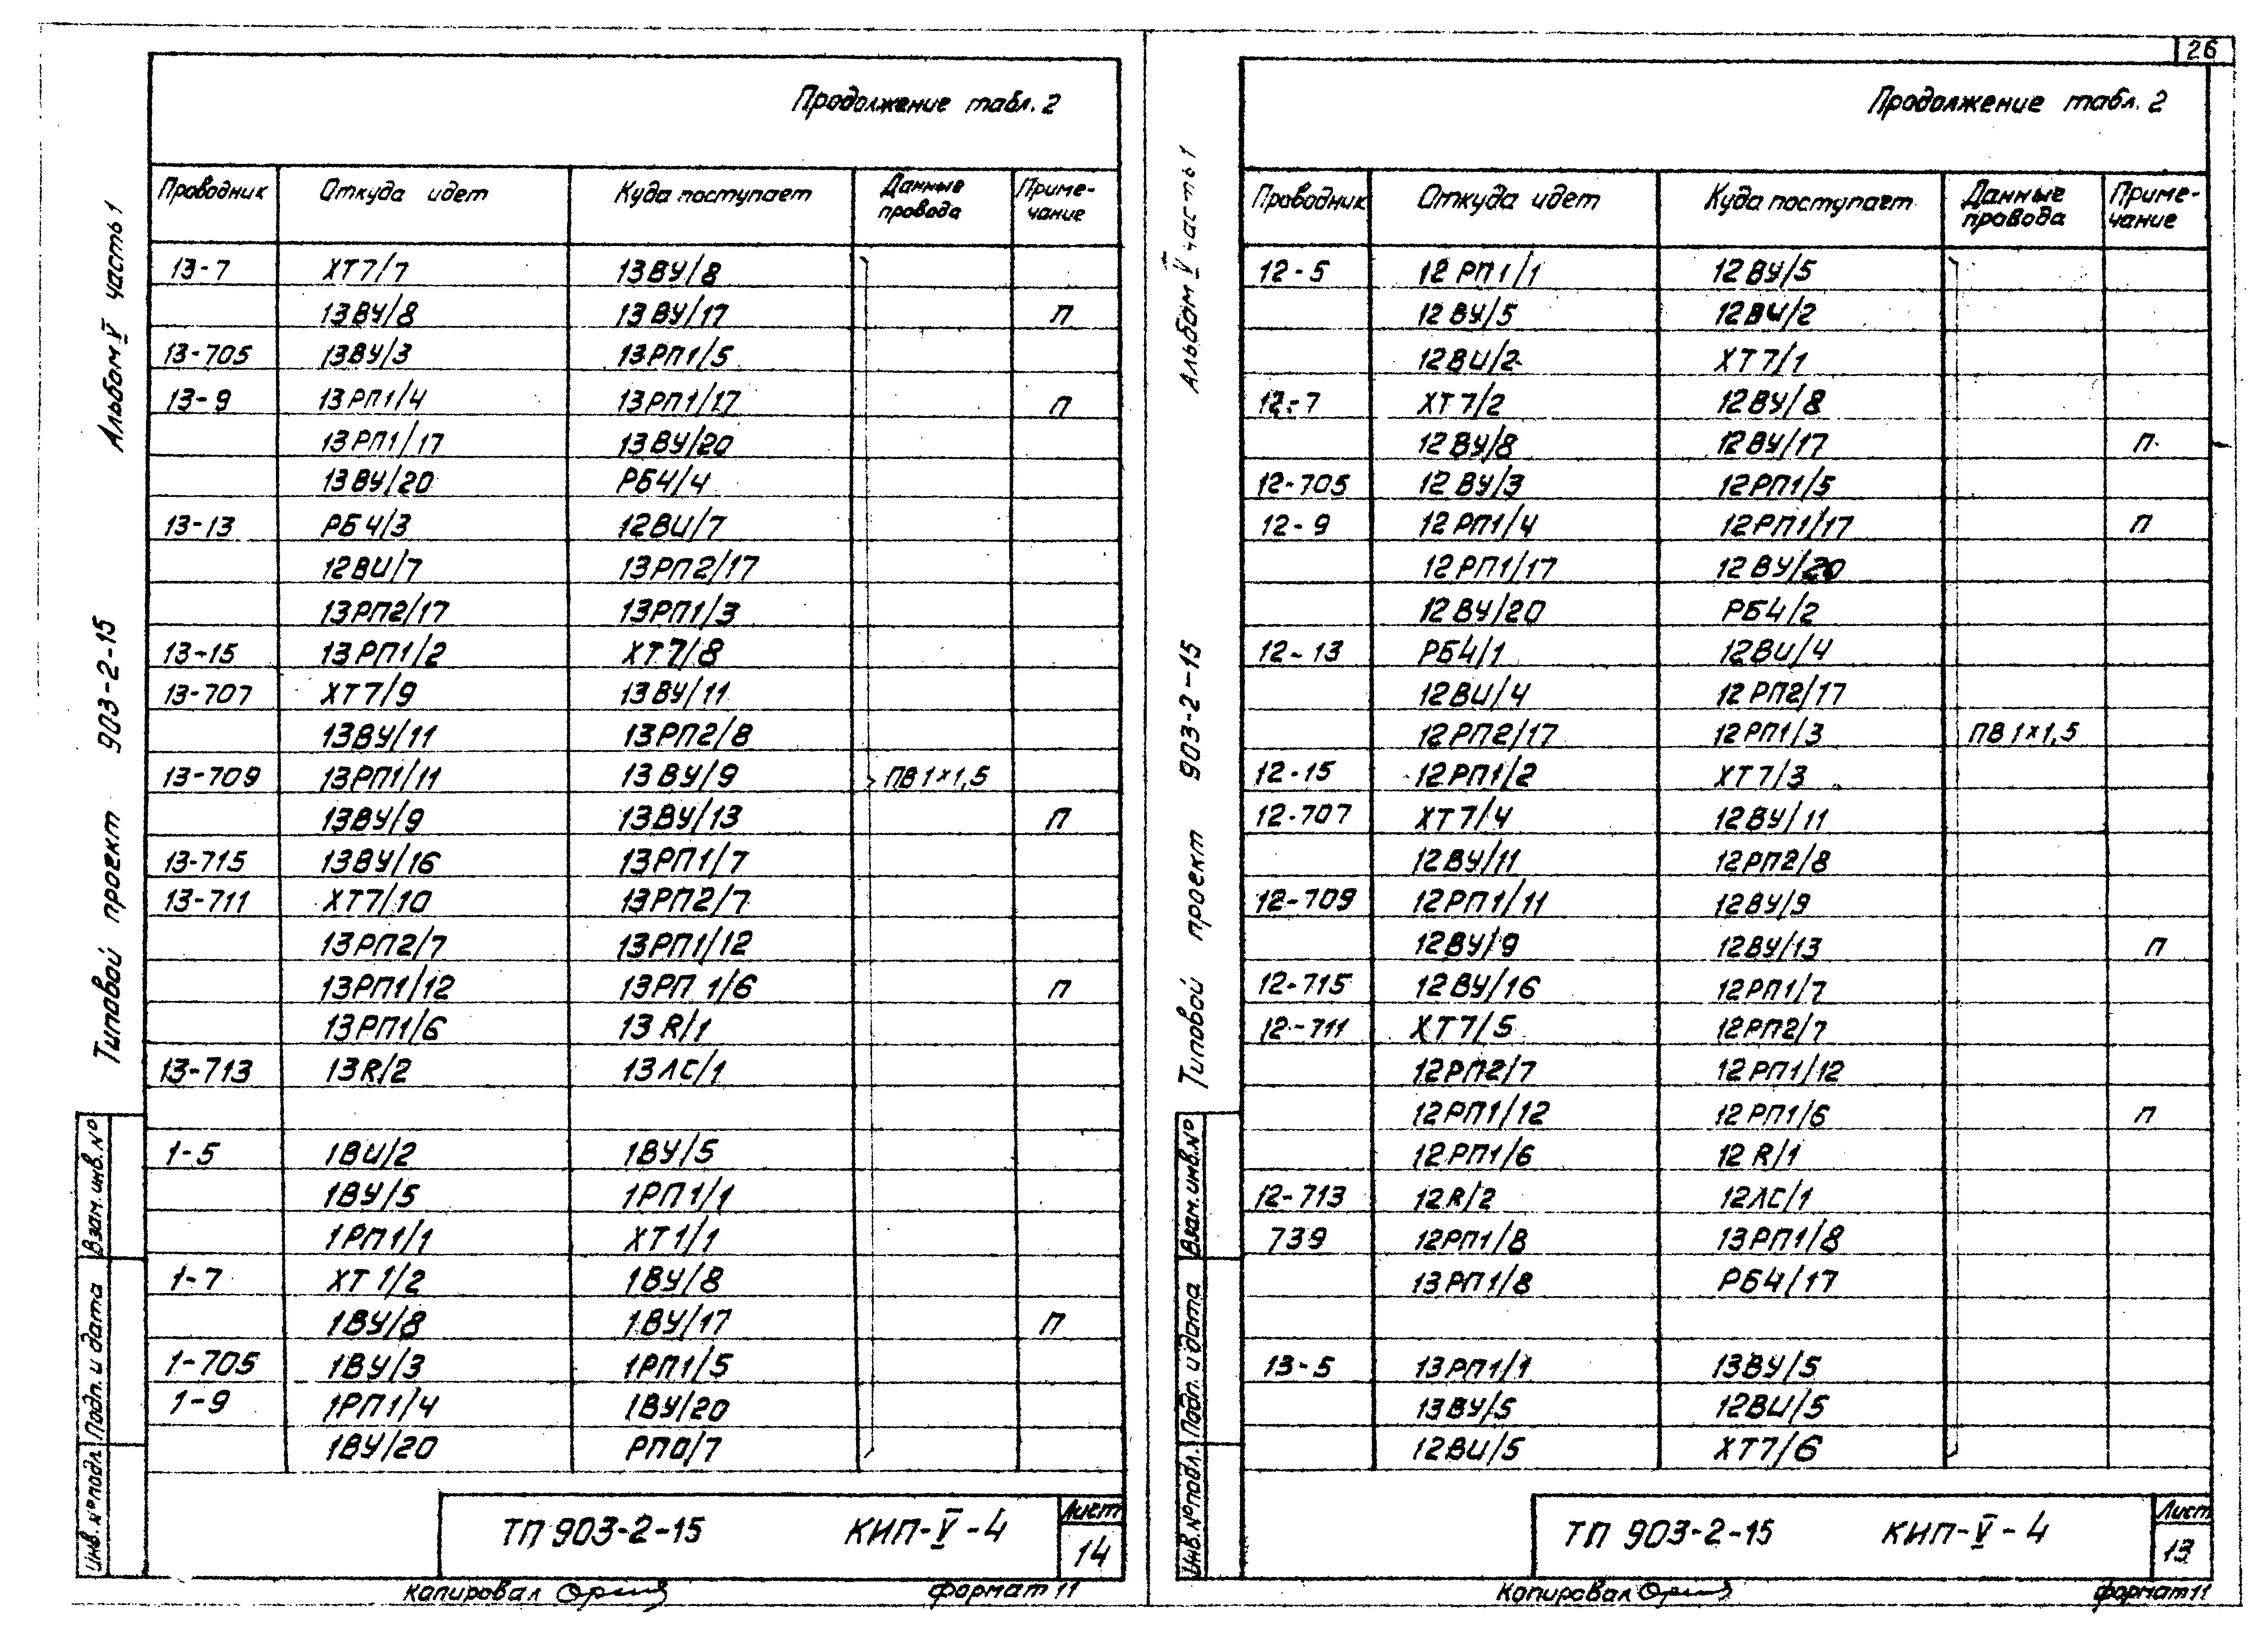 26
Продолжение табл. 2
Проводник Откуда идет Куда поступает Данные провода Приме-чание
13-7 ХТ7/7 13ВУ/8
13ВУ/8 13ВУ/17 П
13-705 13ВУ/3 13РП1/5
13-9 13РП1/4 13РП1/17 П
13РП1/17 13ВУ/20
13ВУ/20 РБ4/4
13-13 РБ4/3 12ВИ/7
12ВИ/7 13РП2/17
13РП2/17 13РП1/3
13-15 13РП1/2 ХТ7/8
13-707 ХТ7/9 13ВУ/11
13ВУ/11 13РП2/8
13-709 13РП1/11 13ВУ/9 ПВ1×1,5
13ВУ/9 13ВУ/13 П
13-715 13ВУ/16 13РП1/7
13-711 ХТ7/10 13РП2/7
13РП2/7 13РП1/12
13РП1/12 13РП1/6 П
13РП1/6 13R/1
13-713 13R/2 13ЛС/1
1-5 1ВИ/2 1ВУ/5
1ВУ/5 1РП1/1
1РП1/1 ХТ1/1
1-7 ХТ1/2 1ВУ/8
1ВУ/8 1ВУ/17 П
1-705 1ВУ/3 1РП1/5
1-9 1РП1/4 1ВУ/20
1ВУ/20 РП0/7
ТП 903-2-15 КИП-V-4
Лист
14
Копировал
формат 11
Альбом V часть 1
Типовой проект 903-2-15
Взам. инв. №
Подп. и дата
Инв. № подл.
Продолжение табл. 2
Проводник Откуда идет Куда поступает Данные провода Приме-чание
12-5 12РП1/1 12ВУ/5
12ВУ/5 12ВИ/2
12ВИ/2 ХТ7/1
12-7 ХТ7/2 12ВУ/8
12ВУ/8 12ВУ/17 П
12-705 12ВУ/3 12РП1/5
12-9 12РП1/4 12РП1/17 П
12РП1/17 12ВУ/20
12ВУ/20 РБ4/2
12-13 РБ4/1 12ВИ/4
12ВИ/4 12РП2/17
12РП2/17 12РП1/3 ПВ1×1,5
12-15 12РП1/2 ХТ7/3
12-707 ХТ7/4 12ВУ/11
12ВУ/11 12РП2/8
12-709 12РП1/11 12ВУ/9
12ВУ/9 12ВУ/13 П
12-715 12ВУ/16 12РП1/7
12-711 ХТ7/5 12РП2/7
12РП2/7 12РП1/12
12РП1/12 12РП1/6 П
12РП1/6 12R/1
12-713 12R/2 12ЛС/1
739 12РП1/8 13РП1/8
13РП1/8 РБ4/17
13-5 13РП1/1 13ВУ/5
13ВУ/5 12ВИ/5
12ВИ/5 ХТ7/6
ТП 903-2-15 КИП-V-4
Лист
13
Копировал
формат 11
Альбом V часть 1
Типовой проект 903-2-15
Взам. инв. №
Подп. и дата
Инв. № подл.